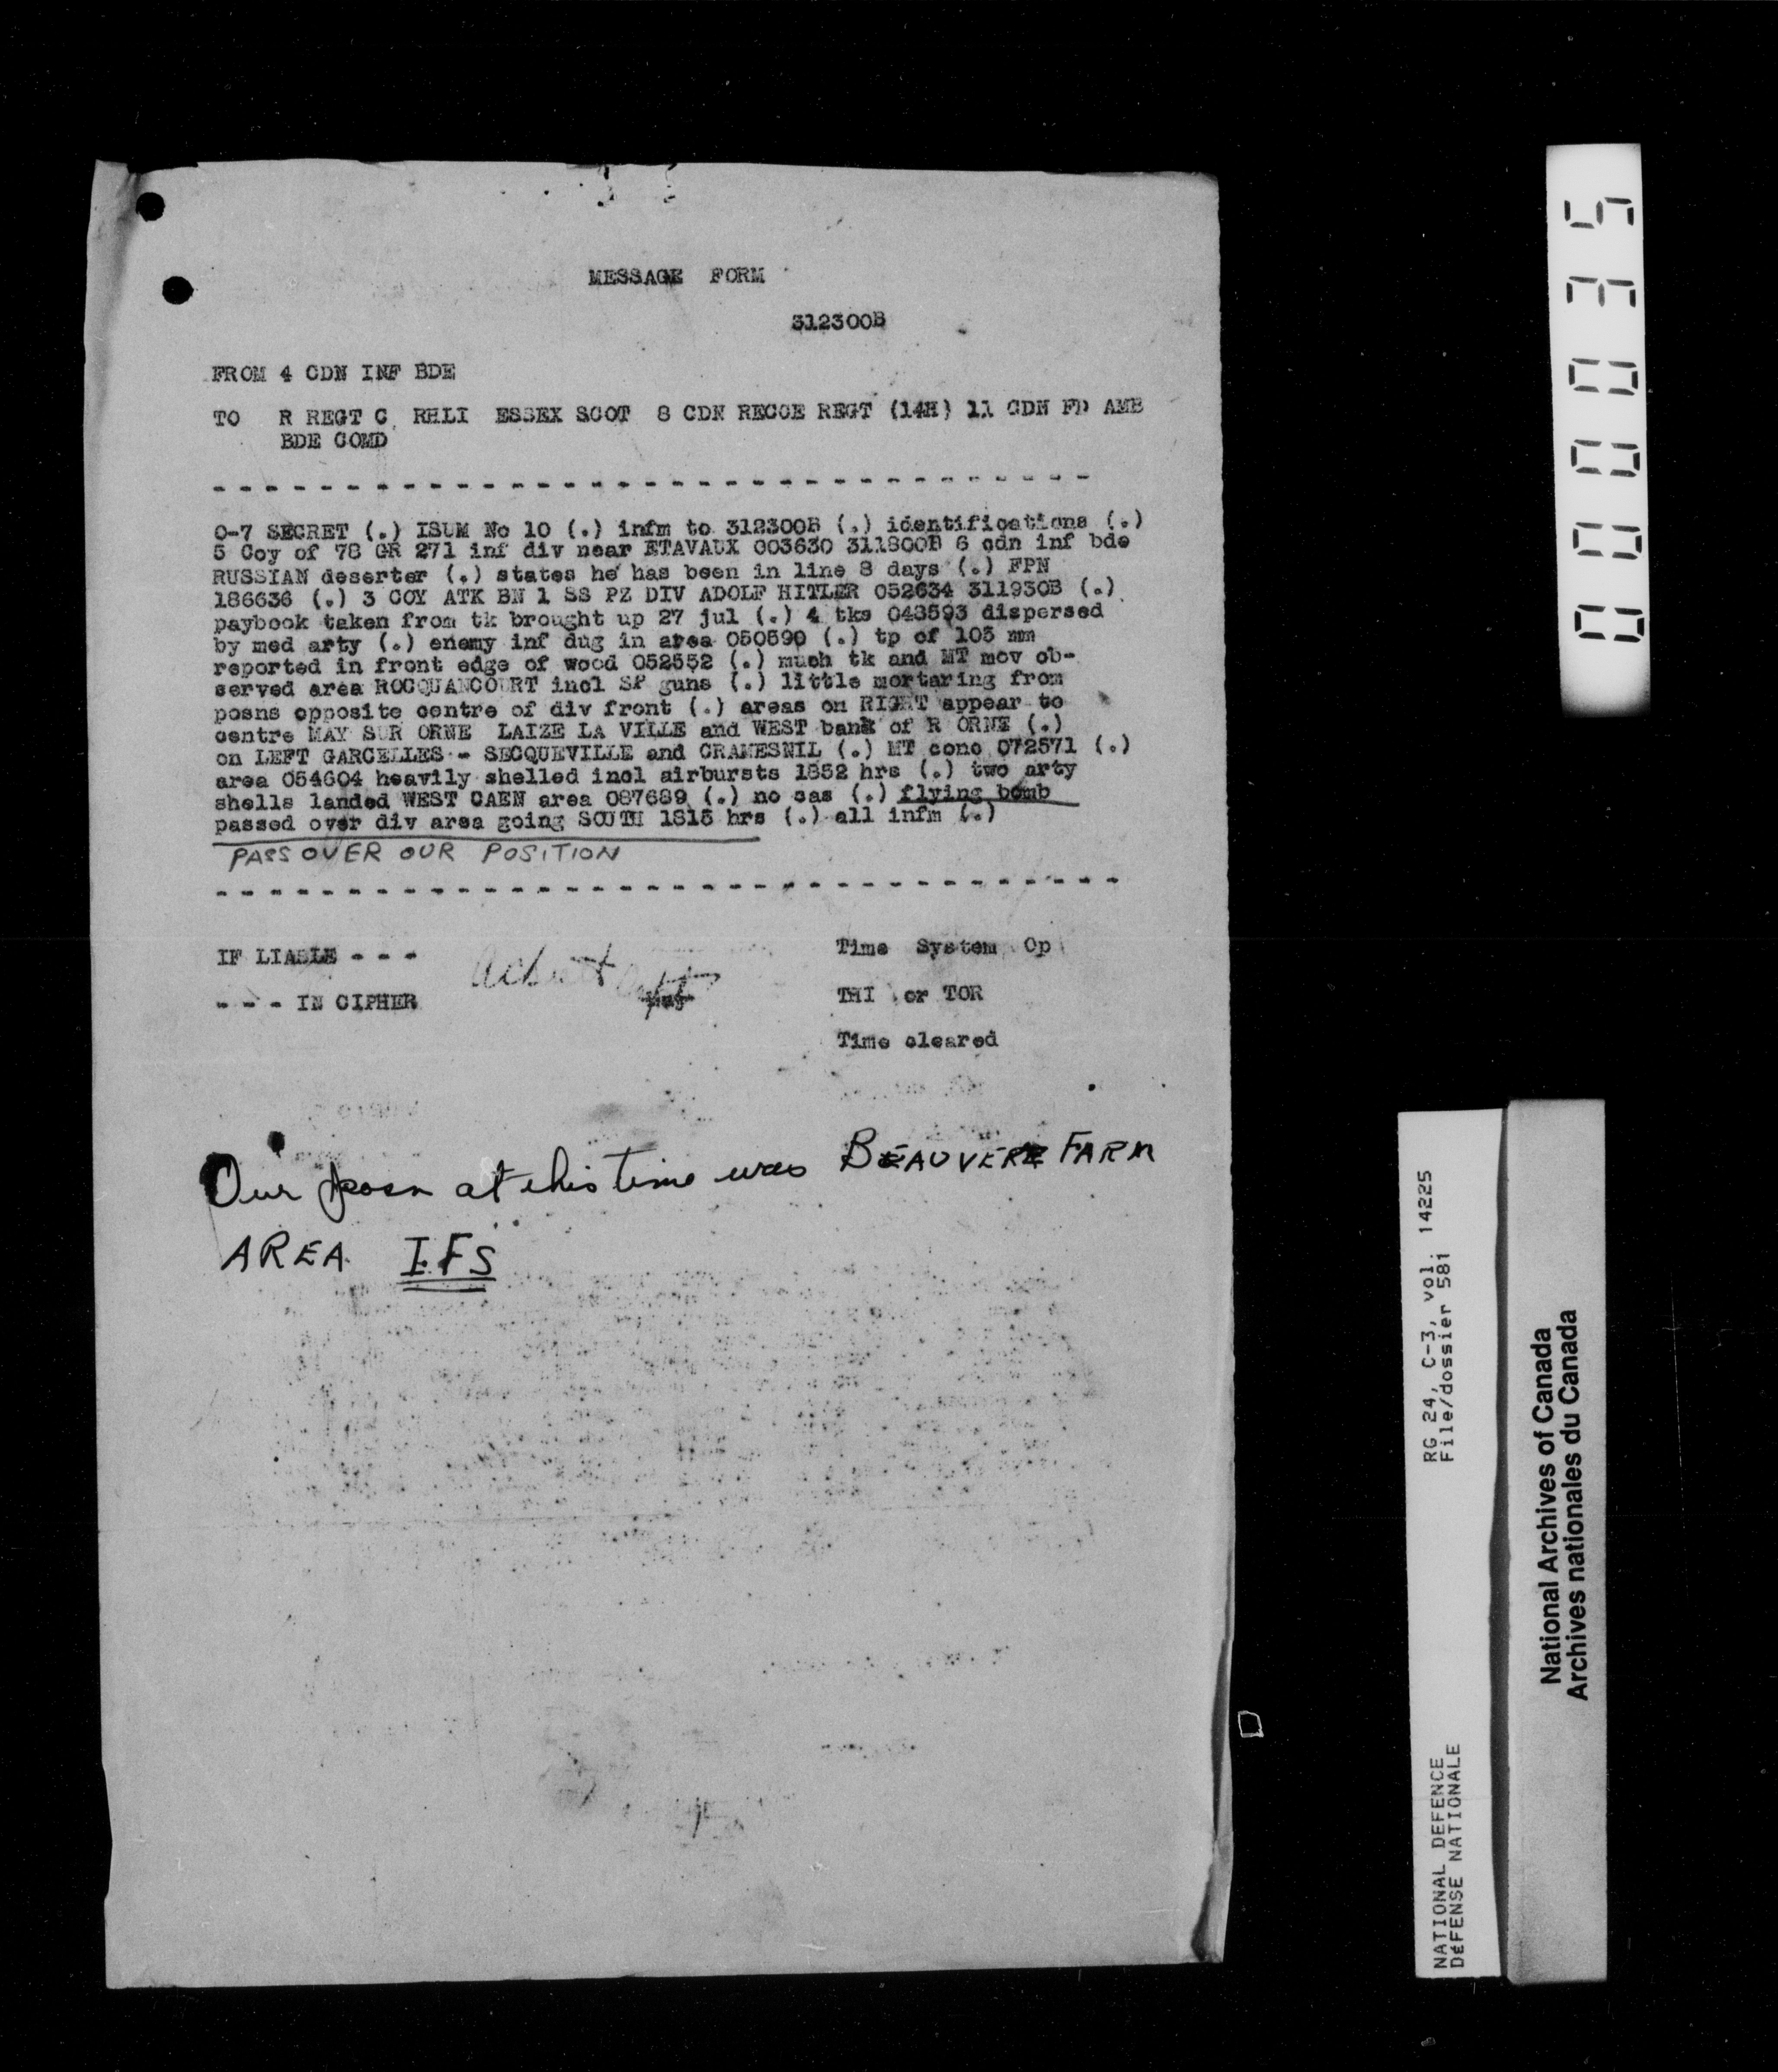 MESSAGE FORM
312300B
FROM 4 CDN INF BDE
TO R REGT C RHLI ESSEX SCOT 8 CDN RECCE REGT (14H) 11 CDN FD AMB
BDE COMD
O-7 SECRET (.) ISUM No 10 (.) infm to 312300B (.) identifications (.)
5 Coy of 78 GR 271 inf div near ETAVAUX 003630 311800B 6 cdn inf bde
RUSSIAN deserter (.) states he has been in line 8 days (.) FPN
186636 (.) 3 COY ATK BN 1 SS PZ DIV ADOLF HITLER 052634 311930B (.)
paybook taken from tk brought up 27 jul (.) 4 tks 043593 dispersed
by med arty (.) enemy inf dug in area 050590 (.) tp of 105 mm
reported in front edge of wood 052552 (.) much tk and MT mov ob-
served area ROCQUANCOURT incl SP guns (.) little mortaring from
posns opposite centre of div front (.) areas on RIGHT appear to
centre MAY SUR ORNE LAIZE LA VILLE and WEST bank of R ORNE (.)
on LEFT GARCELLES - SECQUEVILLE and CRAMESNIL (.) MT conc 072571 (.)
area 054604 heavily shelled incl airbursts 1852 hrs (.) two arty
shells landed WEST CAEN area 087689 (.) no cas (.) flying bomb
passed over div area going SOUTH 1815 hrs (.) all infm (.)
PASS OVER OUR POSITION
IF LIABLE - - -
Time System Op
- - - IN CIPHER
THI or TOR
Time cleared
Our posn at this time was BEAUVERE FARM
AREA IFS
00035
RG 24, C-3, vol. 14225
File/dossier 581
NATIONAL DEFENCE
DéFENSE NATIONALE
National Archives of Canada
Archives nationales du Canada